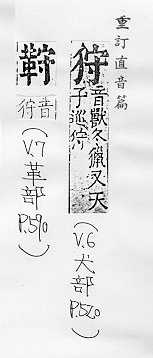 重訂直音篇
狩
音獸冬獵又天
子巡狩
(V.6 犬部 P.520)
音狩
(V.7 革部 P.590)